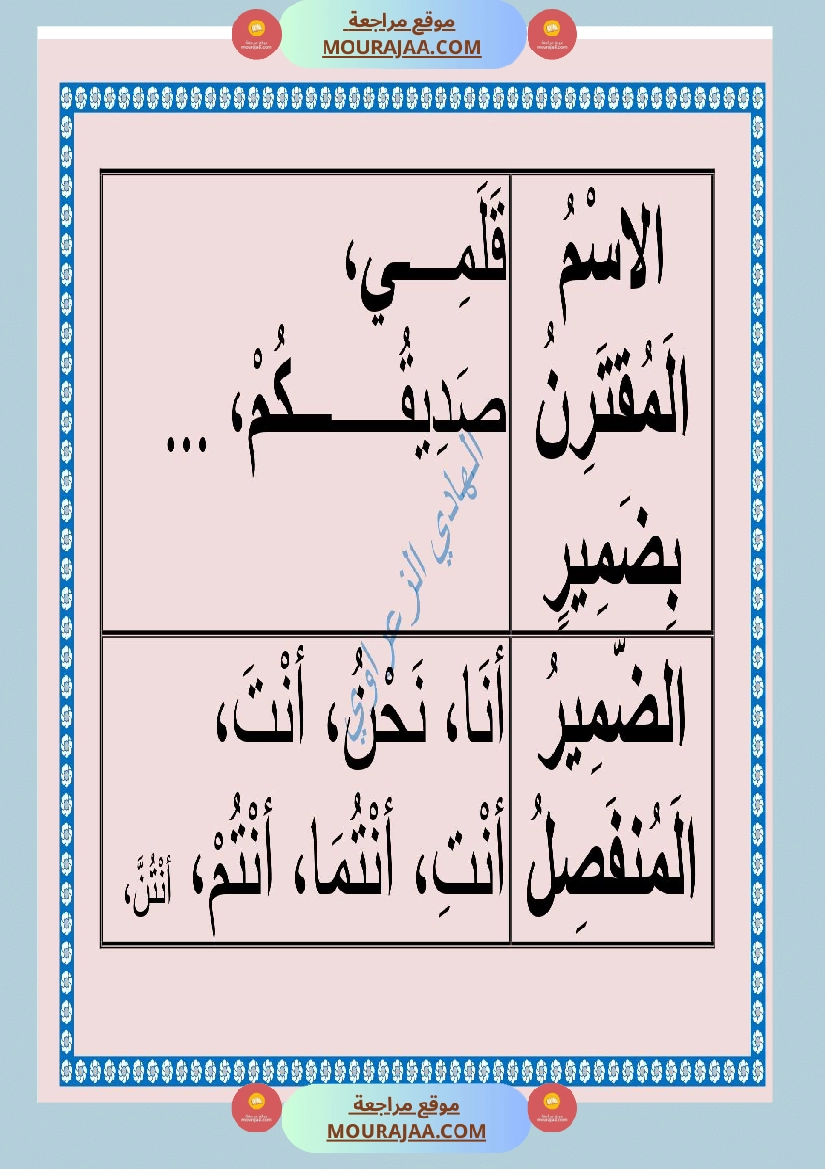 موقع مراجعة
MOURAJAA.COM
الاسْمُ
الَمُقتَرِنُ
بِضَمِيرٍ
قَلَمِـــي،
صَدِيقُــــــكُمْ، ...
الضّمِيرُ
الَمُنفَصِلُ
أَنَا، نَحْنُ، أَنْتَ،
أَنْتِ، أَنْتُمَا، أَنْتُمْ، أَنْتُنَّ،
الهادي الزعراوي
موقع مراجعة
MOURAJAA.COM